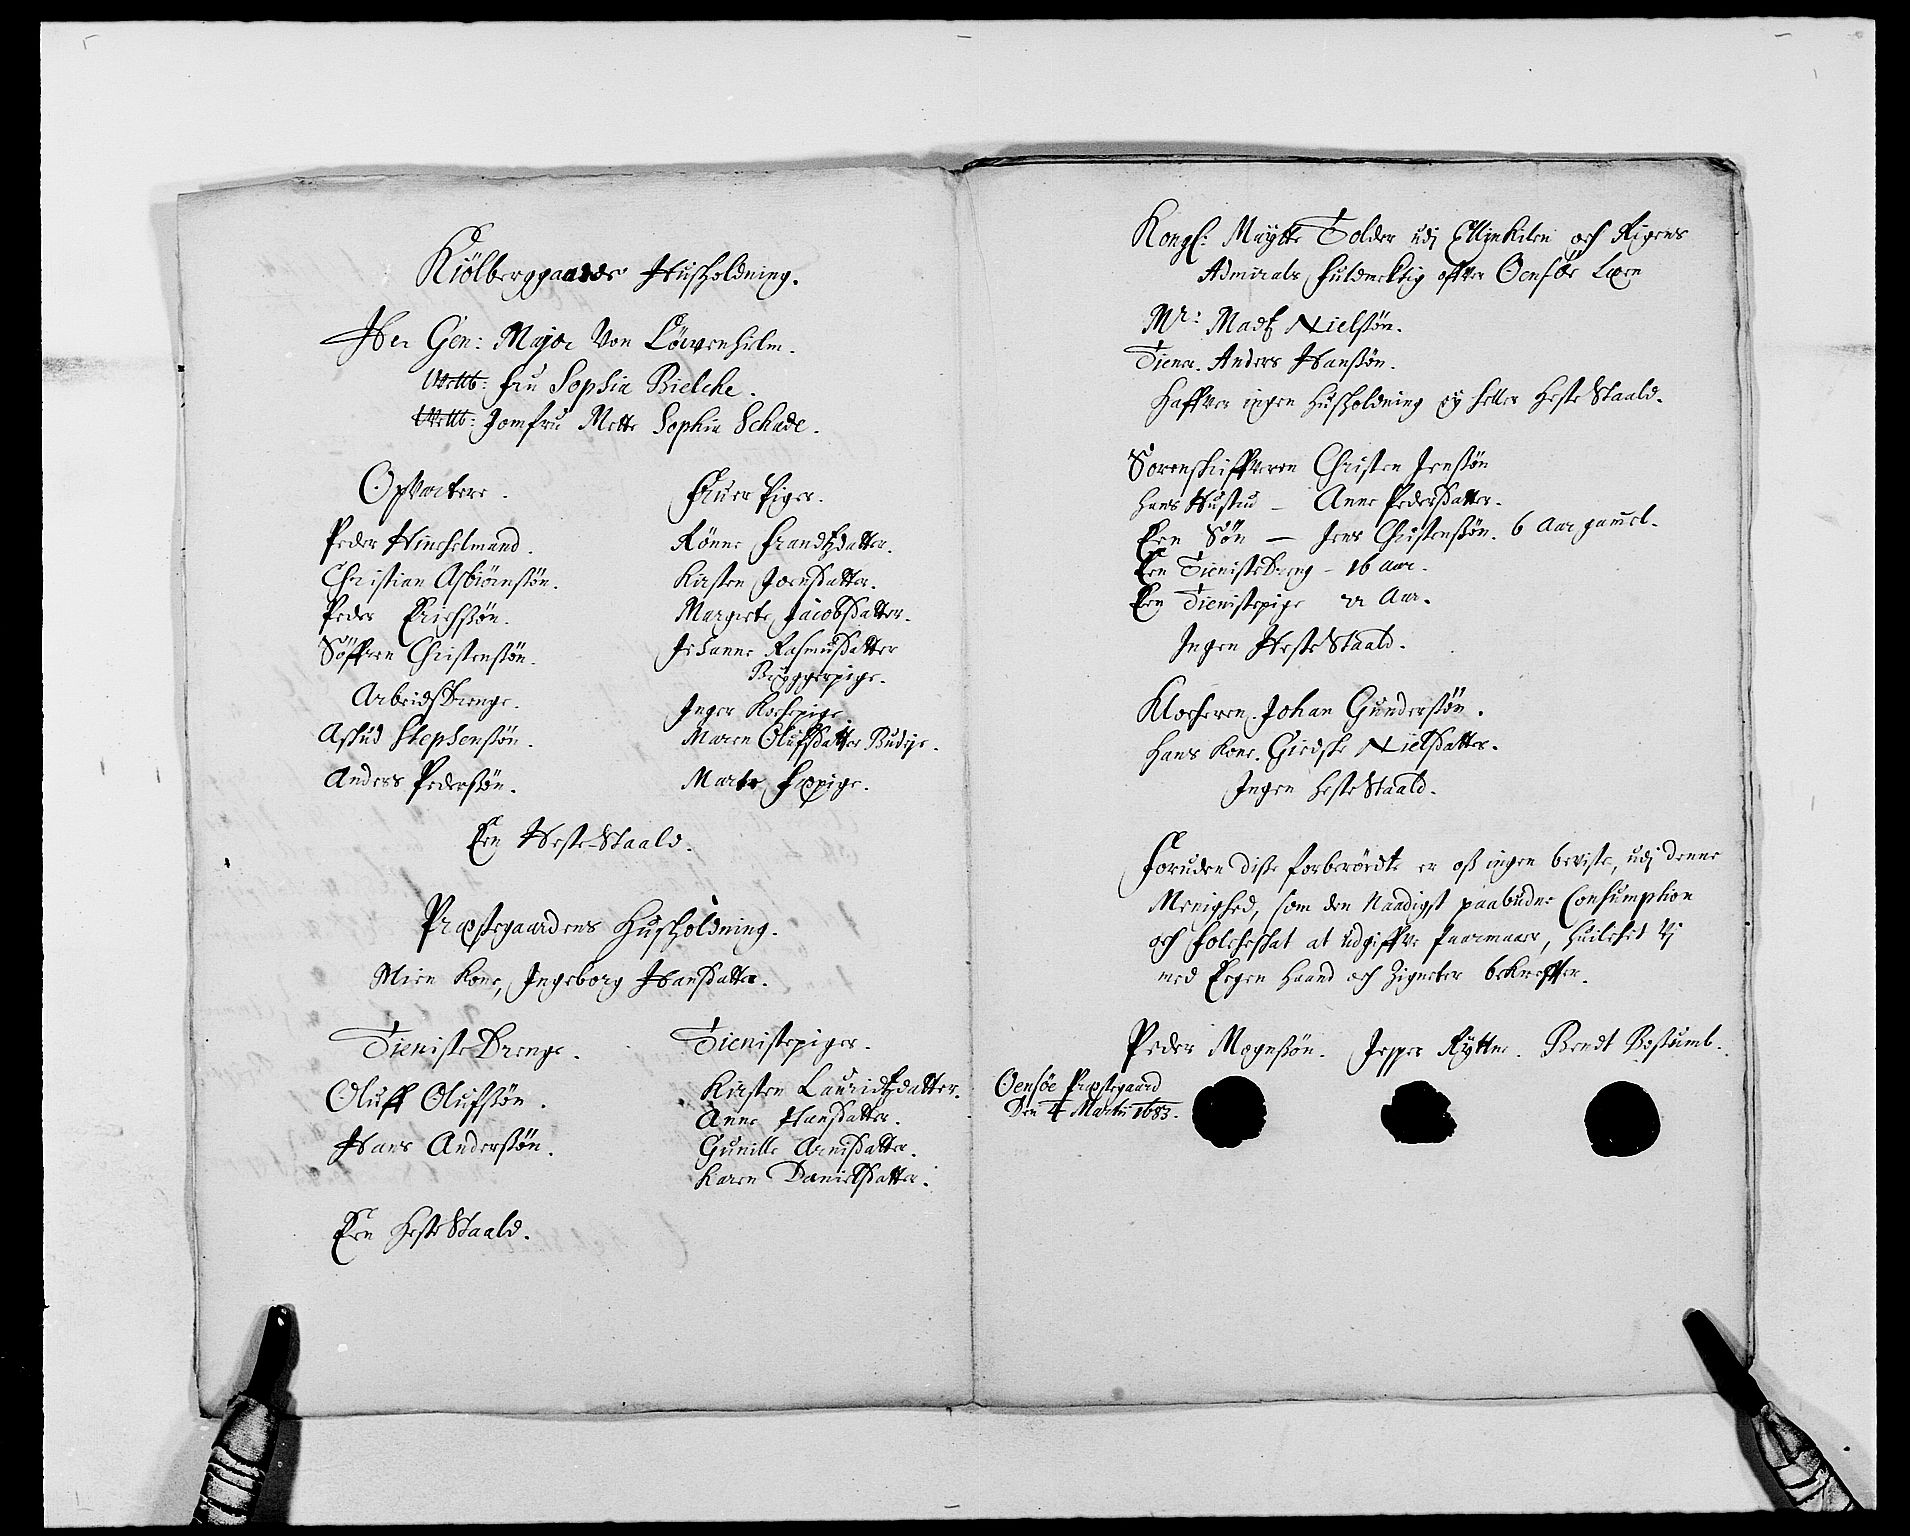 Kiölberggaards Husholdning.
Her Gen: Major Von Löwenhielm.
Velb: fru Sophia Bielche.
Velb: Jomfru Mette Sophia Schade.
Opvartere.
Peder Himchelmand.
Christian Asbiörnssön.
Peder Erichssön.
Söffren Christenssön.
Arbeidsdrenge.
Aslud Stephenssön.
Anders Pederssön.
Fruer Piger.
Rönne Frandtzdatter.
Kirsten Joensdatter.
Margrete Jacobsdatter.
Johanne Rasmusdatter
Bryggerpige.
Inger Kochepige
Maren Olufsdatter Budeje.
Marte Fæpige.
Een Heste-Staald.
Præstegaardens Husholdning.
Mien Kone, Ingeborg Hansdatter.
Tieniste Drenge.
Oluff Olufssön.
Hans Anderssön.
Tienistepiger.
Kirsten Lauridtzdatter.
Anne Hansdatter.
Gunille Arnisdatter.
Karen Danielsdatter.
Een Heste Staald.
Kongl: Maytts Tolder udj Ellinkilen och Rigens
Admirals fuldmektig offver Oensöe Læen
Mr: Madtz Nielssön.
Tiener. Anders Hanssön.
Haffver ingen Husholdning ey heller Heste Staald.
Sorenskriffveren Christen Jenssön
hans Hustru - Anne Pedersdatter.
Een Sön - Jens Christenssön. 6 Aar gamel.
Een Tieniste Dreng - 16 aar.
Een Tienistepige 22 Aar.
Ingen Heste Staald.
Klocheren. Johan Gunderssön.
Hans Kone. Giedske Nielsdatter.
Ingen Heste Staald.
Foruden disse forberördte er oss ingen beviste, udj denne
Menighed, som den Naadigst paabudne Consumption
och Folcheskat at udgiffve paarmaar, Huilchet Vj
med Egen Haand och Zigneter bekreffter.
Peder Mognssön. Jesper Rytter. Bendt Bostumb.
Oensöe Præstegaard
Den 4 Martii 1683.